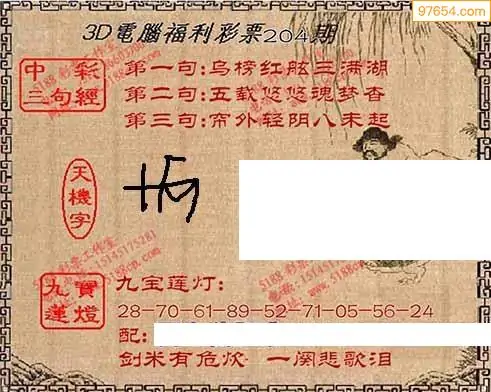 97654.com
3D電腦福利彩票204期
中彩三句經
第一句:乌榜红舷三满湖
第二句:五载悠悠魂梦杳
第三句:帘外轻阴八未起
天機字
5188 彩票工作室
15145175281
九寶蓮燈
九宝莲灯:
28-70-61-89-52-71-05-56-24
配:
剑米有危炊 一阕悲歌泪